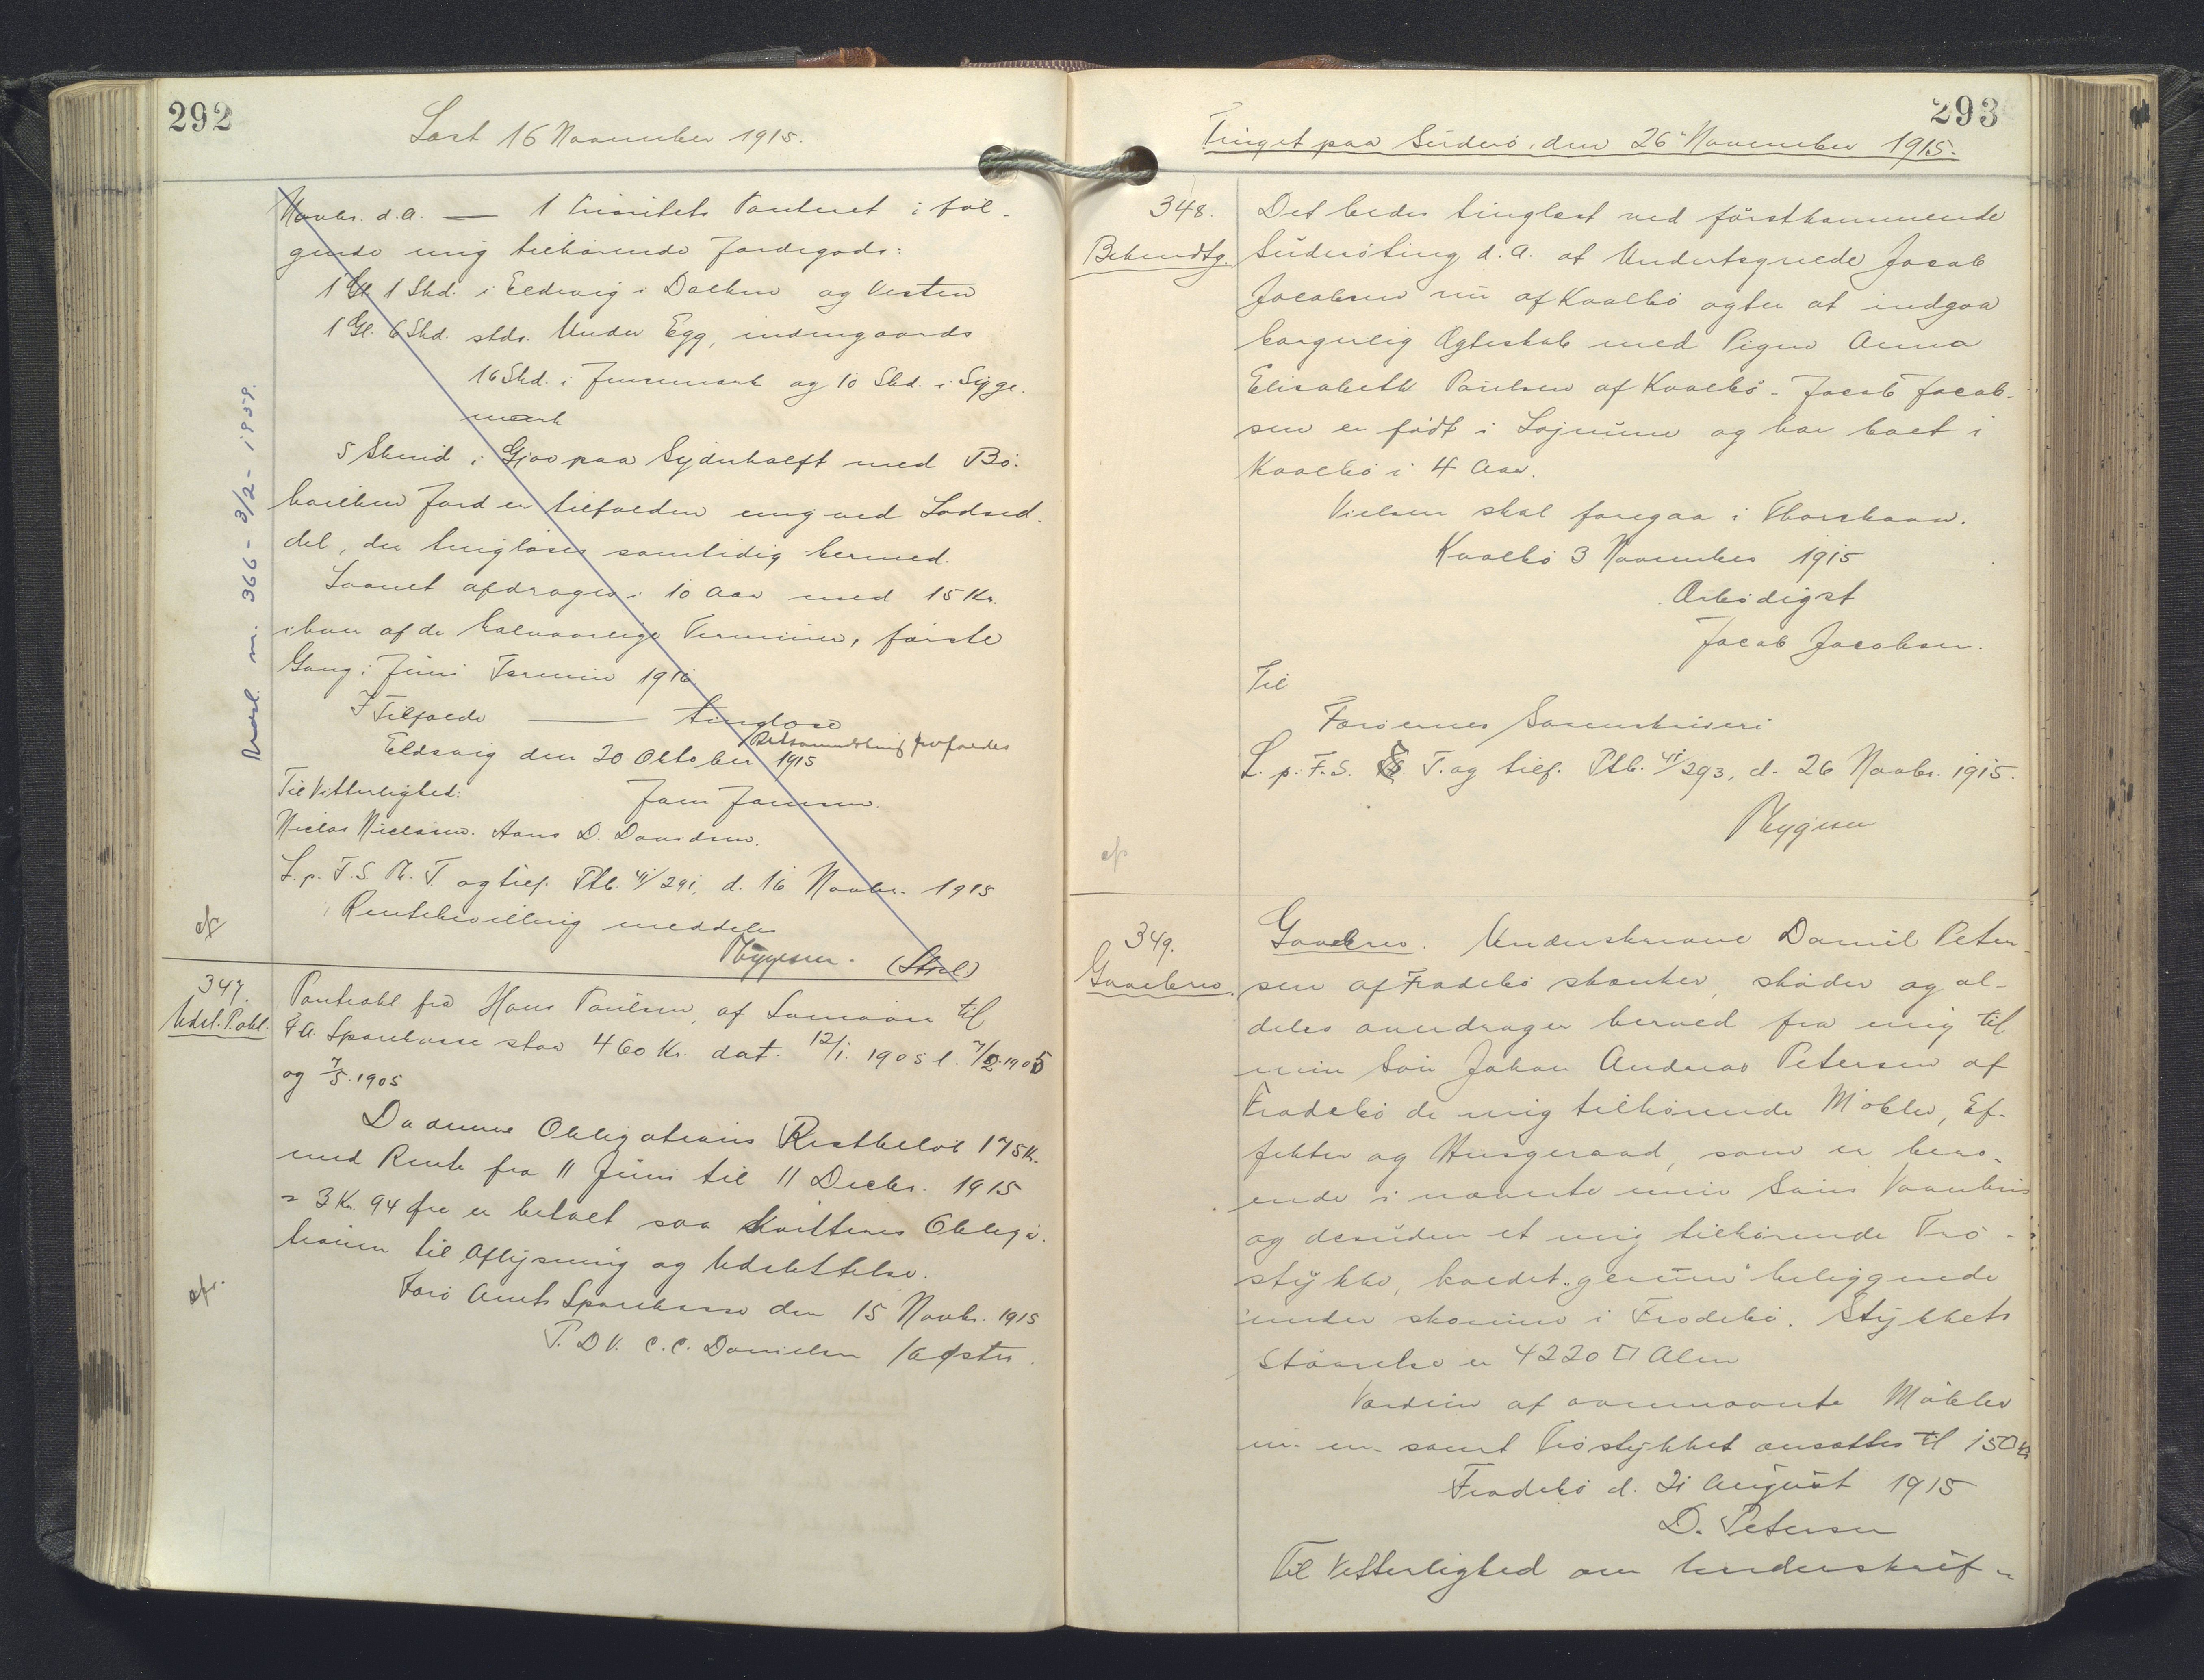 292
Læst 16 November 1915.
Novbr. d.A. — 1 Prioritets Panteret i føl-
gende mig tilhørende Jordegods:
1 Gl. 1 Skd. i Eldevig i Dalken og Vesten
1 Gl. 6 Skd. stds. Under Egg, indengaards
16 Skd. i Innimark og 10 Skd. i Sygge-
mark
5 Skind i Gjov paa Syderhalft med Bø-
Jord er tilfalden mig ved Lodsed-
del, der tinglæses samtidig hermed.
Laanet afdrages i 10 Aar med 15 Kr.
i hver af de halvaarlige Terminer, første
Gang i Juni Termin 1916.
I Tilfælde — tinglæse
Retsanmærkning frafaldes
Eldevig den 20 Oktober 1915
Til Vitterlighed: Joen Joensen.
Niclas Niclasen. Hans D. Davidsen.
L. p. F. S. N. T. og tilf. Ptb. 41/291, d. 16 Novbr. 1915
Rentebevilling meddeles
Myggesen. (Stpl.)
Udsl. m. 366 - 3/2 - 1959.
ef
347.
Udsl. P.obl.
Panteobl. fra Hans Poulsen, af Lamoair til
F A. Sparekasse stor 460 Kr. dat. 12/1. 1905 l. 7/2 1905
og 7/5. 1905
Da denne Obligations Restbeløb 175 Kr.
med Rente fra 11 Juni til 11 Decbr. 1915
= 3 Kr. 94 Øre er betalt saa kvitteres Obliga-
tionen til Aflysning og Udslettelse.
Færø Amts Sparekasse den 15 Novbr. 1915
P. D V. C. C. Danielsen /
ef.
293
Tinget paa Suderø, den 26 November 1915.
348.
Bekendtg.
Det bedes tinglæst ved førstkommende
Suderøting d.A. at Undertegnede Jacob
Jacobsen nu af Kvalbø agter at indgaa
borgerlig Ægteskab med Pigen Anna
Elisabeth Poulsen af Kvalbø - Jacob Jacob-
sen er født i Lojnum og har boet i
Kvalbø i 4 Aar.
Vielsen skal foregaa i Thorshavn.
Kvalbø 3 November 1915
Ærbødigst
Jacob Jacobsen.
Til
Færøernes Sorenskriveri
L. p. F. S. S. T. og tilf. Ptb. 41/293, d. 26 Novbr. 1915.
Myggesen
ef
349.
Gavebrev.
Gavebrev. Underskrevne Daniel Peter-
sen af Frodebø skænker, skøder og al-
deles overdrager herved fra mig til
min Søn Johan Andreas Petersen af
Frodebø de mig tilhørende Møbler, Ef-
fekter og Husgeraad, som er bero-
ende i nævnte min Søns Vaanhus
og desuden et mig tilhørende Trø-
stykke, kaldet "gerum" beliggende
under skorum i Frodebø. Stykkets
Størrelse er 4220 □ Alen
Værdien af ovennævnte Møbler
m. m. samt Trøstykket ansættes til 150 Kr
Frodebø d. 21 August 1915
D. Petersen
Til Vitterlighed om Underskrif-